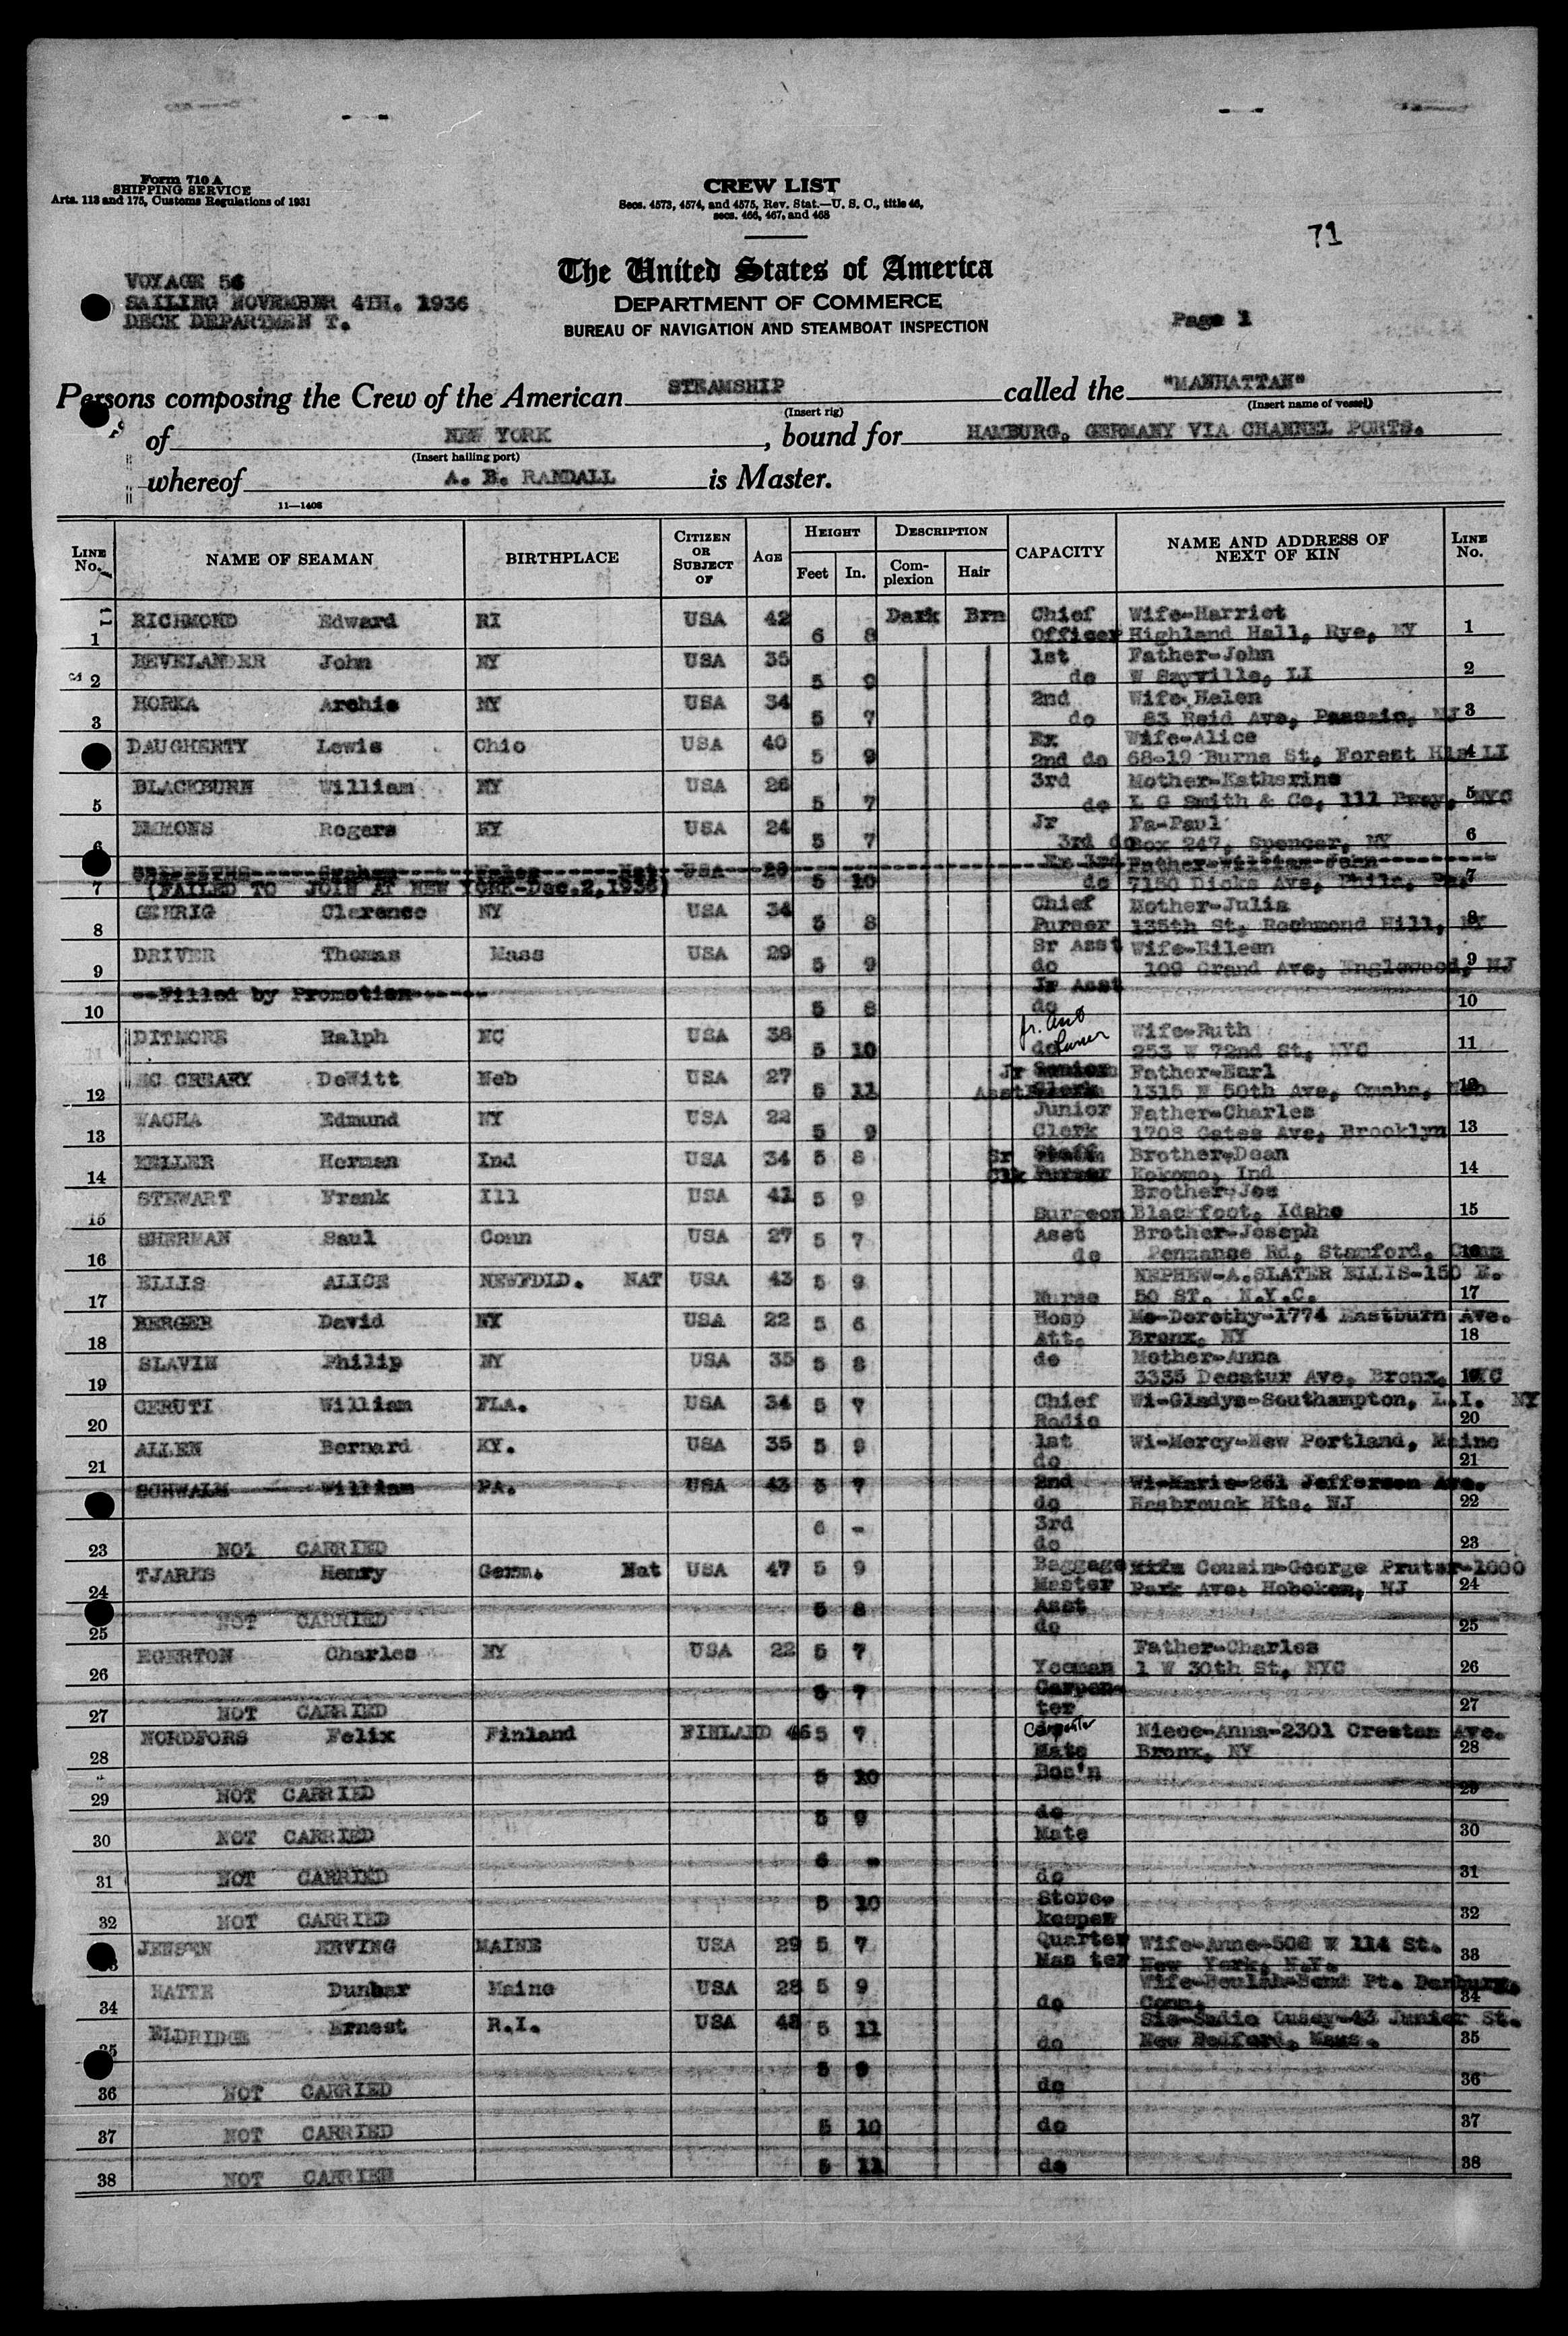 Form 710 A
SHIPPING SERVICE
Arts. 113 and 175, Customs Regulations of 1931
CREW LIST
Secs. 4573, 4574, and 4575, Rev. Stat.—U. S. C., title 46,
secs. 466, 467, and 468
71
VOYAGE 56
SAILIRG NOVEMBER 4TH. 1936
DECK DEPARTMEN T.
The United States of America
DEPARTMENT OF COMMERCE
BUREAU OF NAVIGATION AND STEAMBOAT INSPECTION
Page 1
Persons composing the Crew of the American STEAMSHIP called the "MANHATTAN"
(Insert rig) (Insert name of vessel)
of NEW YORK, bound for HAMBURG, GERMANY VIA CHANNEL PORTS.
(Insert hailing port)
whereof A. B. RANDALL is Master.
11—1408
LINE No. NAME OF SEAMAN BIRTHPLACE CITIZEN OR SUBJECT OF AGE HEIGHT Feet In. DESCRIPTION Complexion Hair CAPACITY NAME AND ADDRESS OF NEXT OF KIN LINE No.
RICHMOND Edward RI USA 42 Dark Brn Chief Wife-Harriet
1 6 8 Officer Highland Hall, Rye, NY 1
BEVELANDER John NY USA 35 1st Father-John
2 5 9 do W Sayville, LI 2
HORKA Archie NY USA 34 2nd Wife-Helen
3 5 7 do 83 Reid Ave, Passaic, NJ 3
DAUGHERTY Lewis Ohio USA 40 Ex Wife-Alice
5 9 2nd do 68-19 Burns St, Forest Hls LI 4
BLACKBURN William NY USA 26 3rd Mother-Katherine
5 5 7 do L G Smith & Co, 111 Bway, NYC 5
EMMONS Rogers NY USA 24 Jr Fa-Paul
6 5 7 3rd do Box 247, Spencer, NY 6
Wales Nat USA 29 Ex 3rd Father-William John
7 (FAILED TO JOIN AT NEW YORK-Dec.2,1936) 5 10 do 7150 Dicks Ave, Phila, Pa. 7
GEHRIG Clarence NY USA 34 Chief Mother-Julia
8 5 8 Purser 135th St, Rochmond Hill, NY 8
DRIVER Thomas Mass USA 29 Sr Asst Wife-Eileen
9 5 9 do 109 Grand Ave, Englewood, NJ 9
--Filled by Promotion------ Jr Asst
10 5 8 do 10
DITMORE Ralph NC USA 38 Jr. Asst Purser Wife-Ruth
5 10 do 253 W 72nd St, NYC 11
MC CREARY DeWitt Neb USA 27 Jr Senior Father-Earl
12 5 11 Asst Clerk 1315 N 50th Ave, Omaha, Neb 12
WACHA Edmund NY USA 22 Junior Father-Charles
13 5 9 Clerk 1708 Gates Ave, Brooklyn 13
KELLER Herman Ind USA 34 5 8 Sr Staff Brother-Dean
14 Clk Purser Kokomo, Ind 14
STEWART Frank Ill USA 41 5 9 Brother-Joe
15 Surgeon Blackfoot, Idaho 15
SHERMAN Saul Conn USA 27 5 7 Asst Brother-Joseph
16 do Penzance Rd, Stamford, Conn 16
ELLIS ALICE NEWFDLD. NAT USA 43 5 9 NEPHEW-A.SLATER ELLIS-150 E.
17 Nurse 50 ST. N.Y.C. 17
BERGER David NY USA 22 5 6 Hosp Mo-Dorothy-1774 Eastburn Ave.
18 Att. Bronx, NY 18
SLAVIN Philip NY USA 35 5 8 do Mother-Anna
19 3335 Decatur Ave, Bronx, NYC 19
CERUTI William FLA. USA 34 5 7 Chief Wi-Gladys-Southampton, L.I. NY
20 Radio 20
ALLEN Bernard KY. USA 35 5 9 1st Wi-Mercy-New Portland, Maine
21 do 21
SCHWALM William PA. USA 43 5 7 2nd Wi-Marie-261 Jefferson Ave.
do Hasbrouck Hts. NJ 22
6 - 3rd
23 NOT CARRIED do 23
TJARKS Henry Germ. Nat USA 47 5 9 Baggage Wife Cousin-George Pruter-1000
24 Master Park Ave. Hoboken, NJ 24
5 8 Asst
25 NOT CARRIED do 25
EGERTON Charles NY USA 22 5 7 Father-Charles
26 Yeoman 1 W 30th St, NYC 26
5 7 Carpen-
27 NOT CARRIED ter 27
NORDFORS Felix Finland FINLAND 46 5 7 Carpenter Niece-Anna-2301 Creston Ave.
28 Mate Bronx, NY 28
5 10 Bos'n
29 NOT CARRIED 29
5 9 do
30 NOT CARRIED Mate 30
6 -
31 NOT CARRIED do 31
5 10 Store-
32 NOT CARRIED keeper 32
JENSEN ERVING MAINE USA 29 5 7 Quarter Wife-Anne-506 W 114 St.
33 Mas ter New York, N.Y. 33
HATTE Dunbar Maine USA 28 5 9 Wife-Beulah-Bond Pt. Danbury,
34 do Conn. 34
ELDRIDGE Ernest R.I. USA 48 5 11 Sis-Sadie Cusey-43 Junior St.
35 do New Bedford, Mass. 35
5 9
36 NOT CARRIED do 36
37 NOT CARRIED 5 10 do 37
38 NOT CARRIED 5 11 do 38